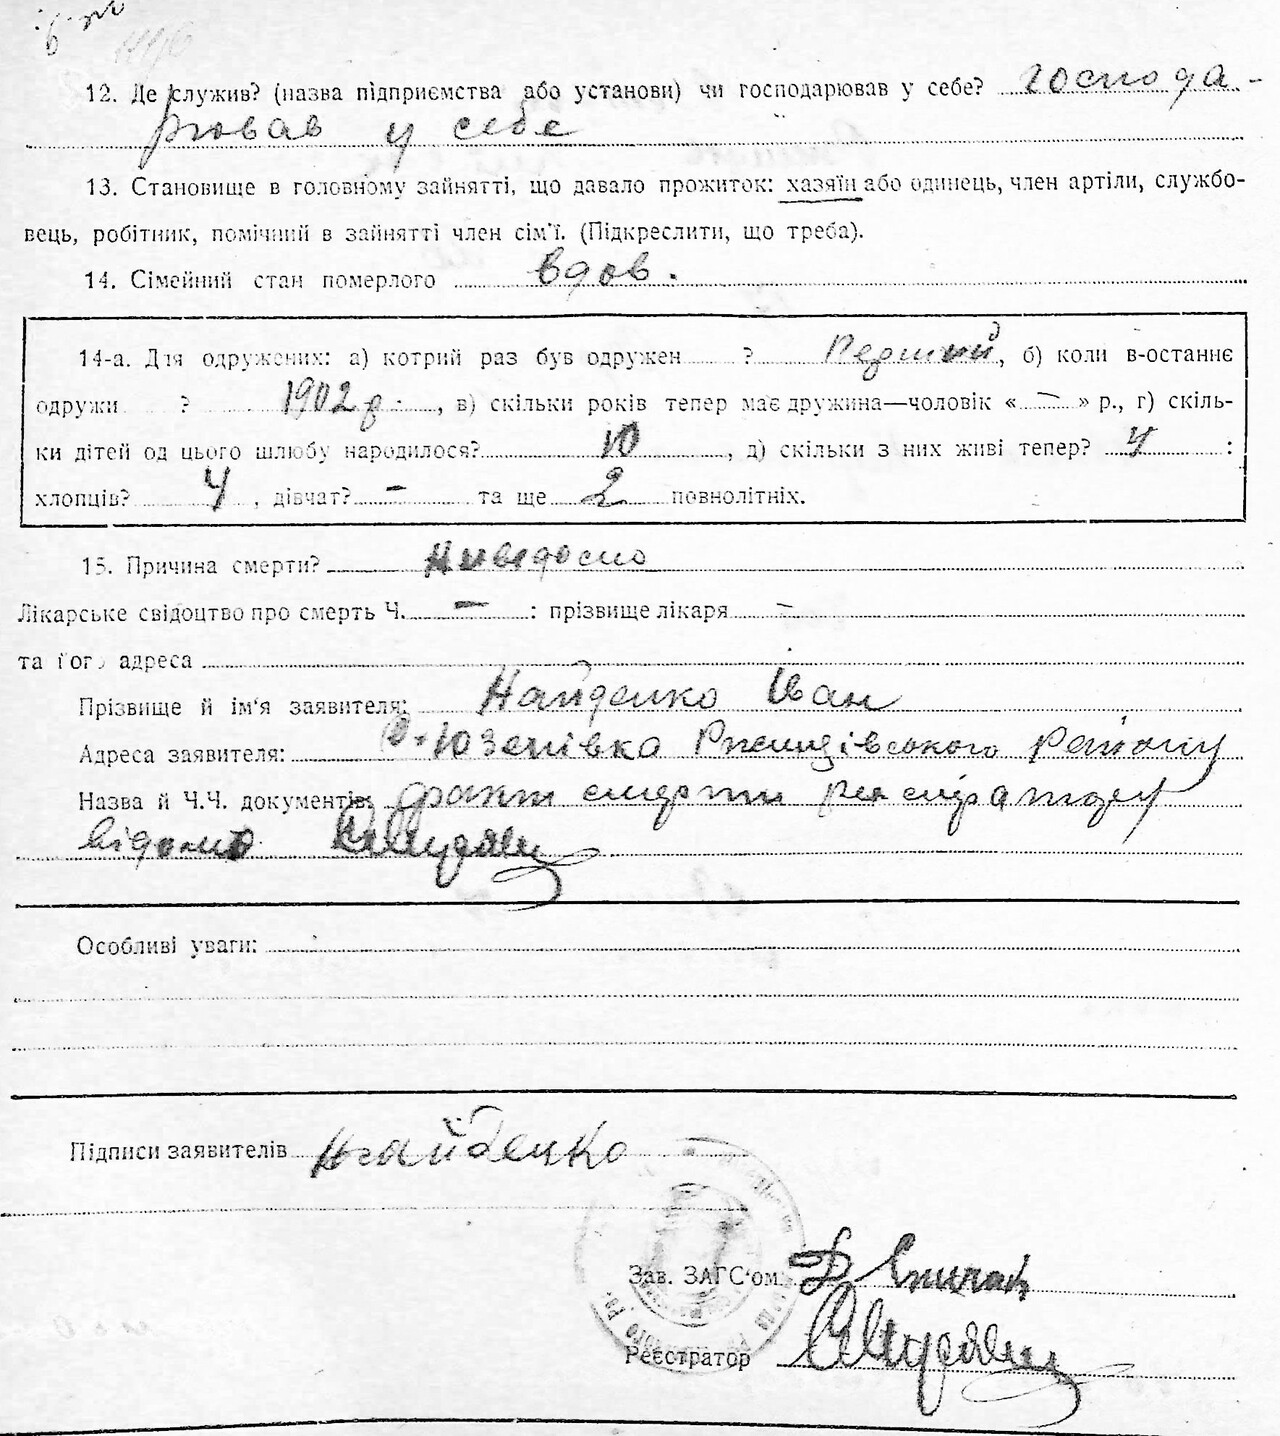 12. Де служив? (назва підприємства або установи) чи господарював у себе? господа-
рював у себе
13. Становище в головному зайнятті, що давало прожиток: хазяїн або одинець, член артіли, службо-
вець, робітник, помічний в зайнятті член сім'ї. (Підкреслити, що треба).
14. Сімейний стан померлого вдов.
14-а. Для одружених: а) котрий раз був одружен ? Перший, б) коли в-останнє
одружи ? 1902 р., в) скільки років тепер має дружина—чоловік « – » р., г) скіль-
ки дітей од цього шлюбу народилося? 10, д) скільки з них живі тепер? 4 :
хлопців? 4, дівчат? – та ще 2 повнолітніх.
15. Причина смерти? Невідомо
Лікарське свідоцтво про смерть Ч. – : прізвище лікаря –
та його адреса
Прізвище й ім'я заявителя: Найденко Іван
Адреса заявителя: Юзепівка Ржищівського Району
Назва й Ч.Ч. документів: факт смерти реєстратору
відомо
Особливі уваги:
Підписи заявителів Найденко
Зав. ЗАГС'ом
Реєстратор